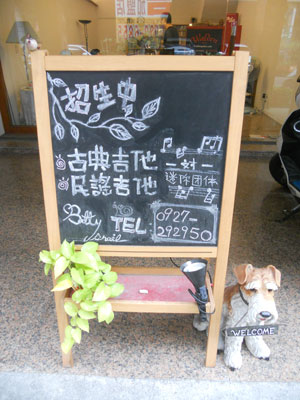 招生中
古典吉他
民謠吉他
一對一
迷你团体
Betty
TEL:
0927-
292950
WELCOME